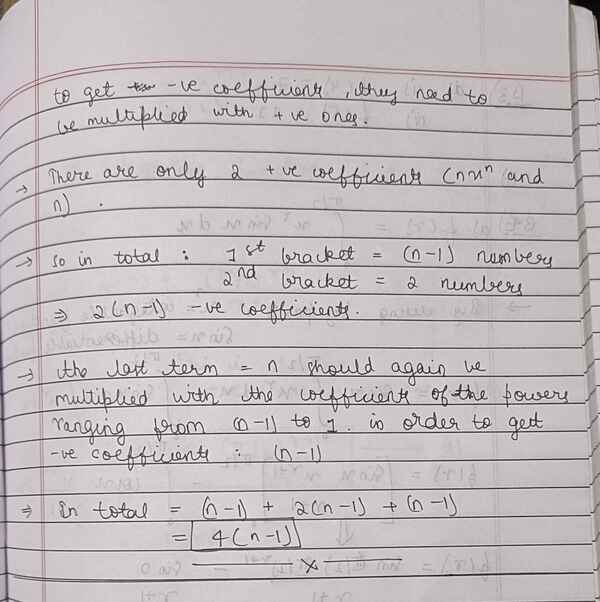 to get -ve coefficients, they need to
be multiplied with +ve ones.
→ There are only 2 +ve coefficients (nxⁿ and
n).
→ So in total : 1st bracket = (n-1) numbers
2nd bracket = 2 numbers
⇒ 2(n-1) -ve coefficients.
→ the last term = n should again be
multiplied with the coefficients of the powers
ranging from (n-1) to 1. in order to get
-ve coefficients ∴ (n-1)
⇒ In total = (n-1) + 2(n-1) + (n-1)
= 4(n-1)
x